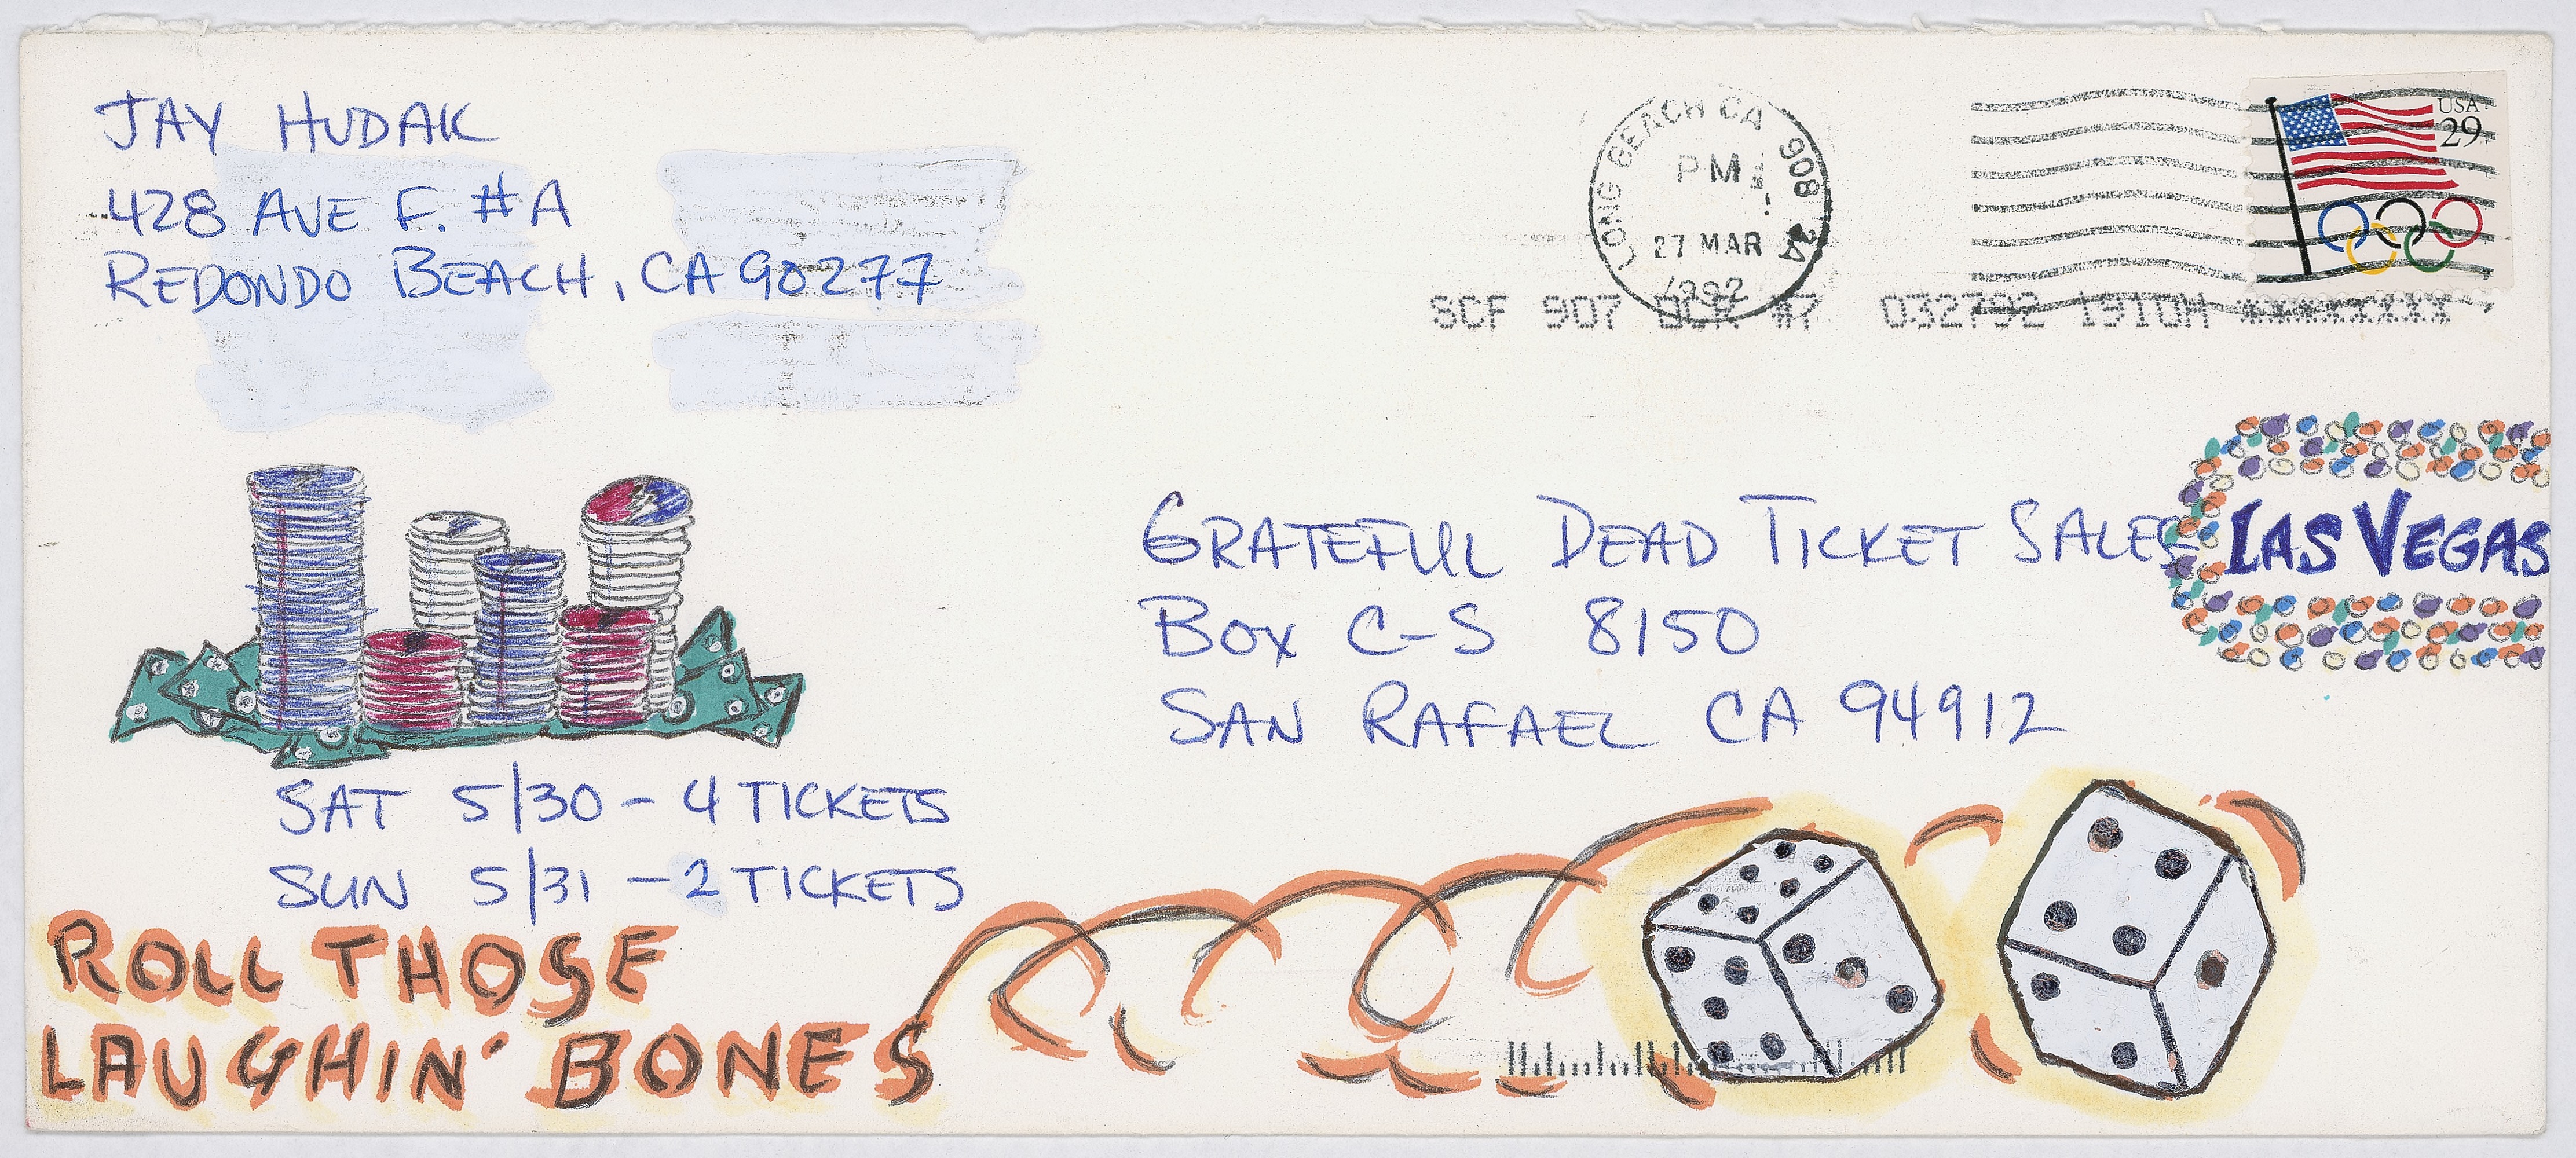 JAY HUDAK
428 AVE F. #A
REDONDO BEACH, CA 90277
LONG BEACH CA 908
PM
27 MAR
1992
USA
29
SCF 907 OCR #7 032792 1910H *********
GRATEFUL DEAD TICKET SALES
LAS VEGAS
BOX C-S 8150
SAN RAFAEL CA 94912
SAT 5/30 - 4 TICKETS
SUN 5/31 - 2 TICKETS
ROLL THOSE
LAUGHIN' BONES